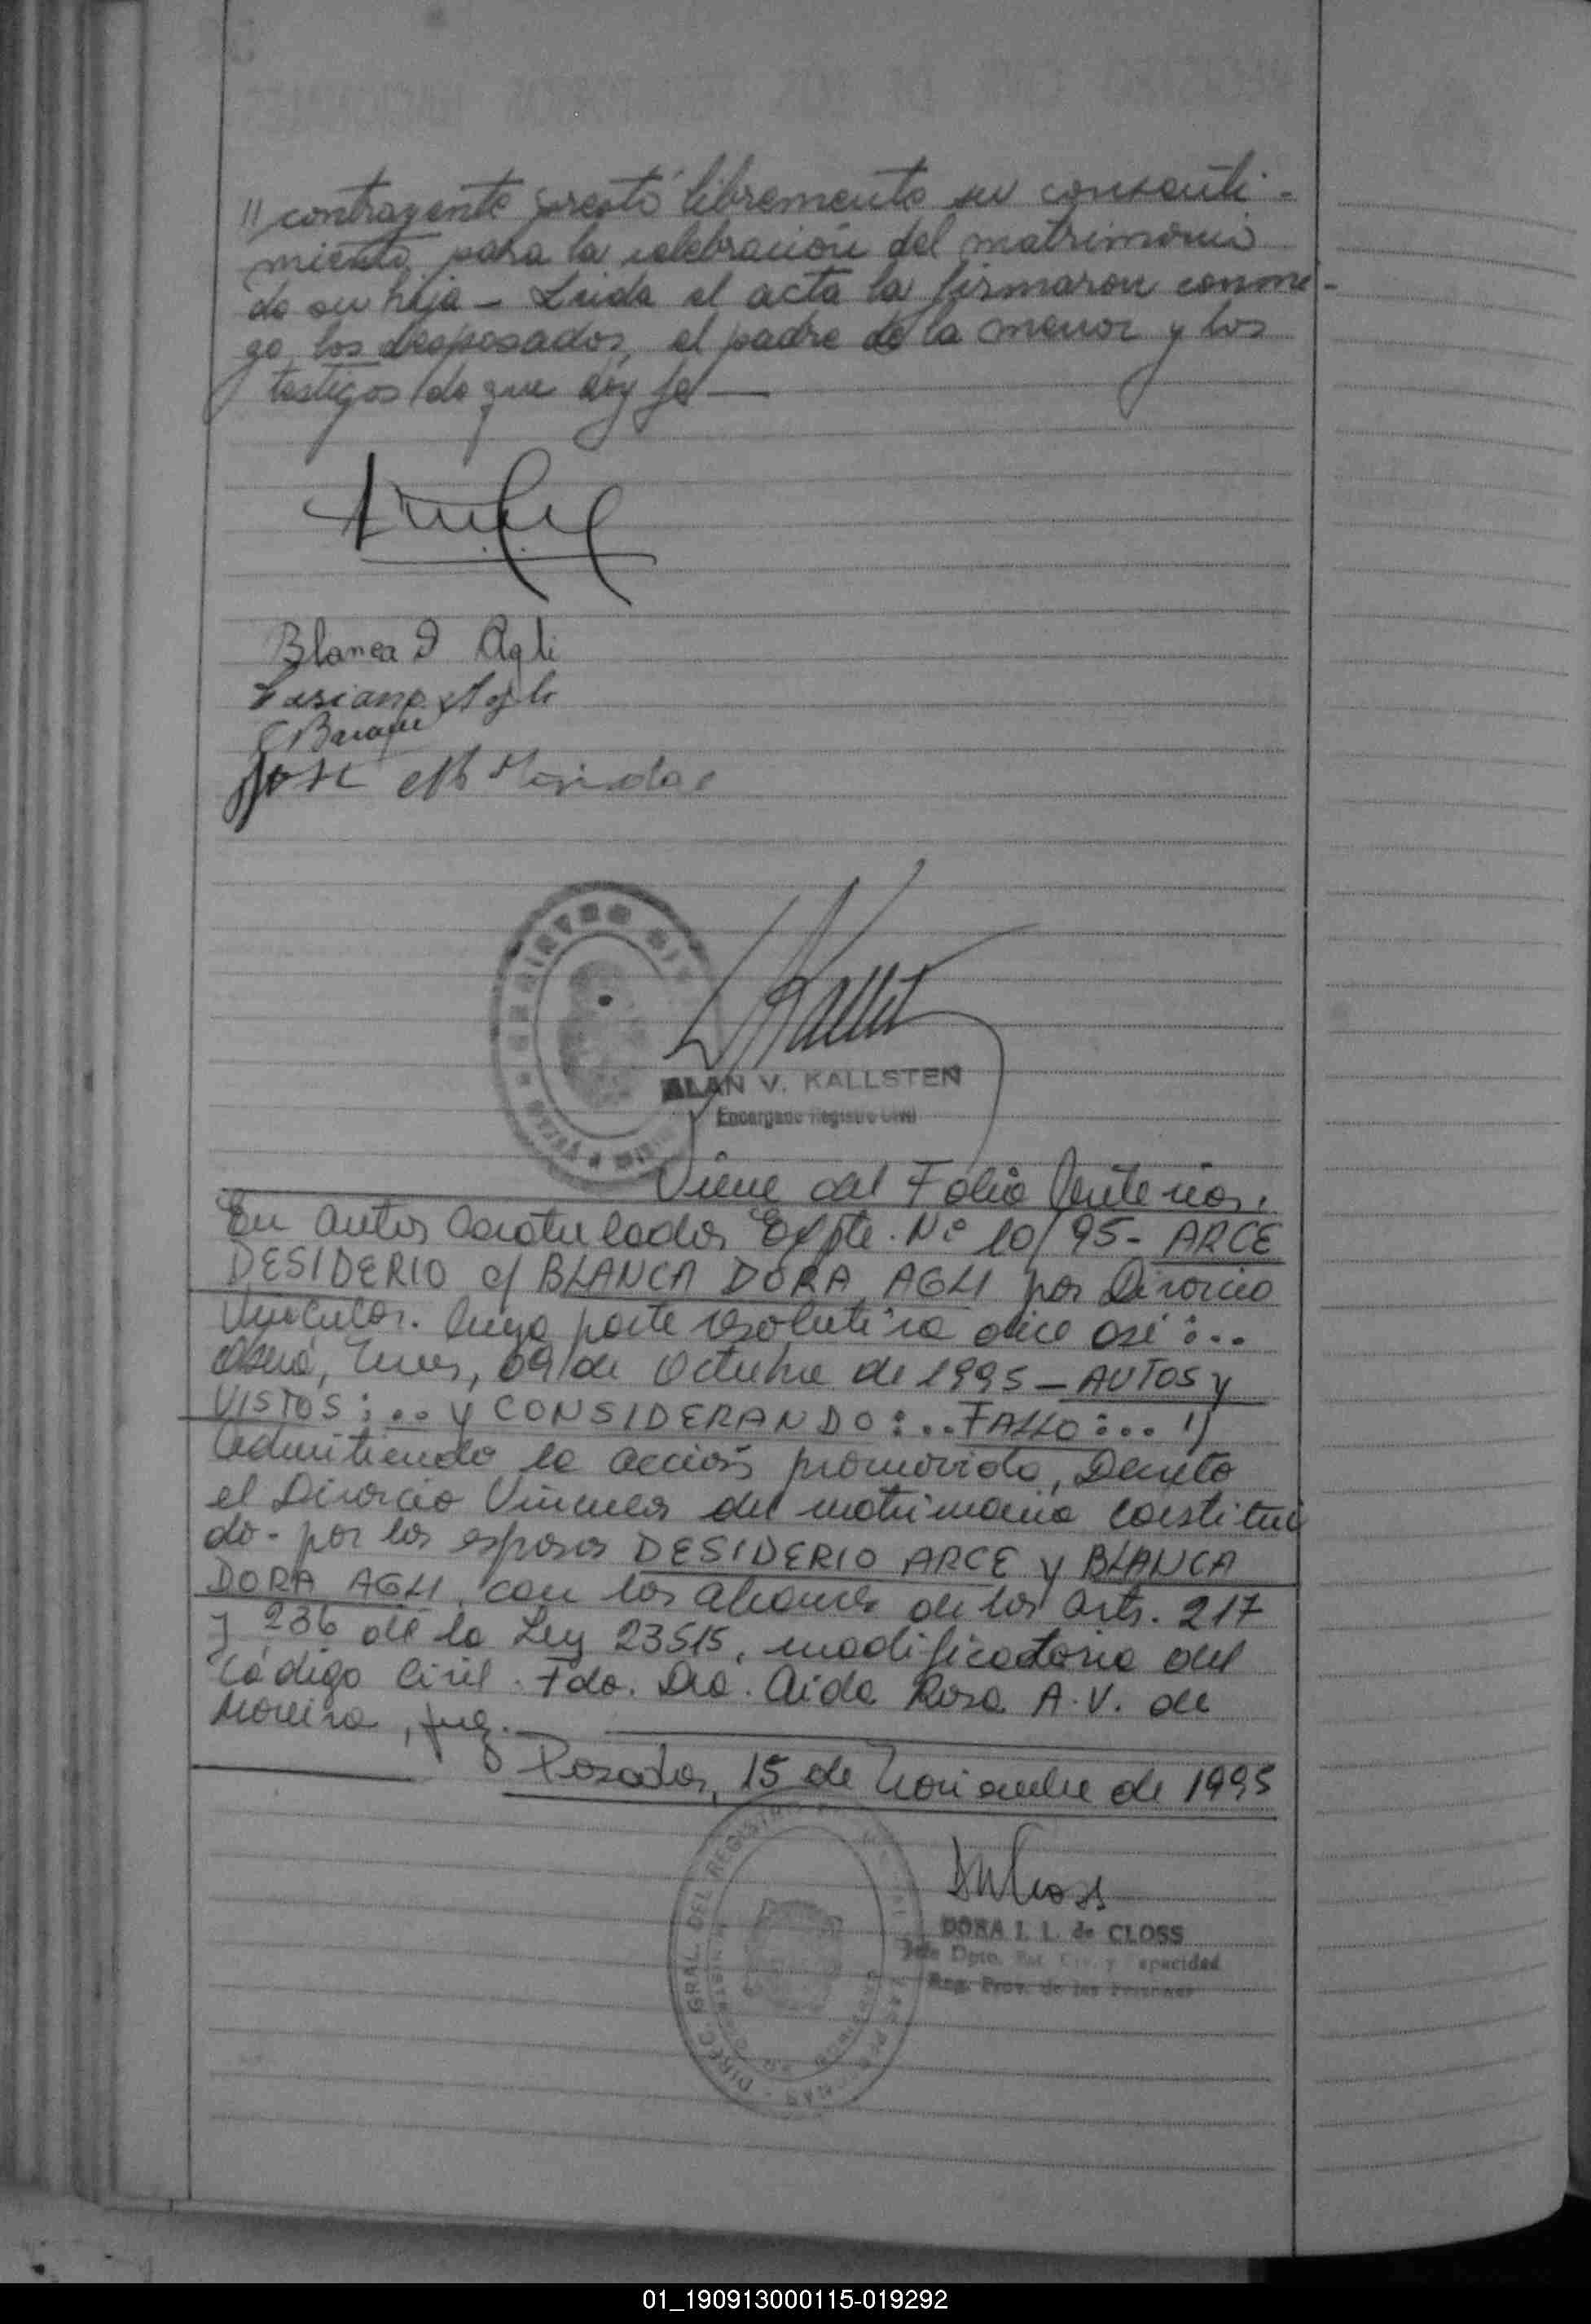 // contrayente prestó libremente su consenti-
miento para la celebración del matrimonio
de su hija - Leida el acta la firmaron conmi-
go, los desposados, el padre de la menor y los
testigos de que doy fe —
Blanca D Agli
Agli
José M
ALAN V. KALLSTEN
Encargado Registro Civil
Viene del Folio Anterior.
En autos Caratulados Expte. Nº 10/95 - ARCE
DESIDERIO c/ BLANCA DORA AGLI por Divorcio
Vincular. Cuya parte resolutiva dice así:...
Oberá, Mnes, 09 de Octubre de 1995 - AUTOS y
VISTOS:... y CONSIDERANDO:... FALLO:... 1)
Admitiendo la acción promovida, Decreto
el Divorcio Vincular del matrimonio constitui
do - por los esposos DESIDERIO ARCE y BLANCA
DORA AGLI, con los alcances de los arts. 217
y 236 de la Ley 23515, modificatoria del
Código Civil. Fdo. Dra. Aida Rosa A.V. de
Moreira, Juez. —
Posadas, 15 de Noviembre de 1995
DIREC. GRAL. DEL REGISTRO
DORA I. L. de CLOSS
Jefe Dpto. Est. Civ. y Capacidad
Reg. Prov. de las Personas
01_190913000115-019292